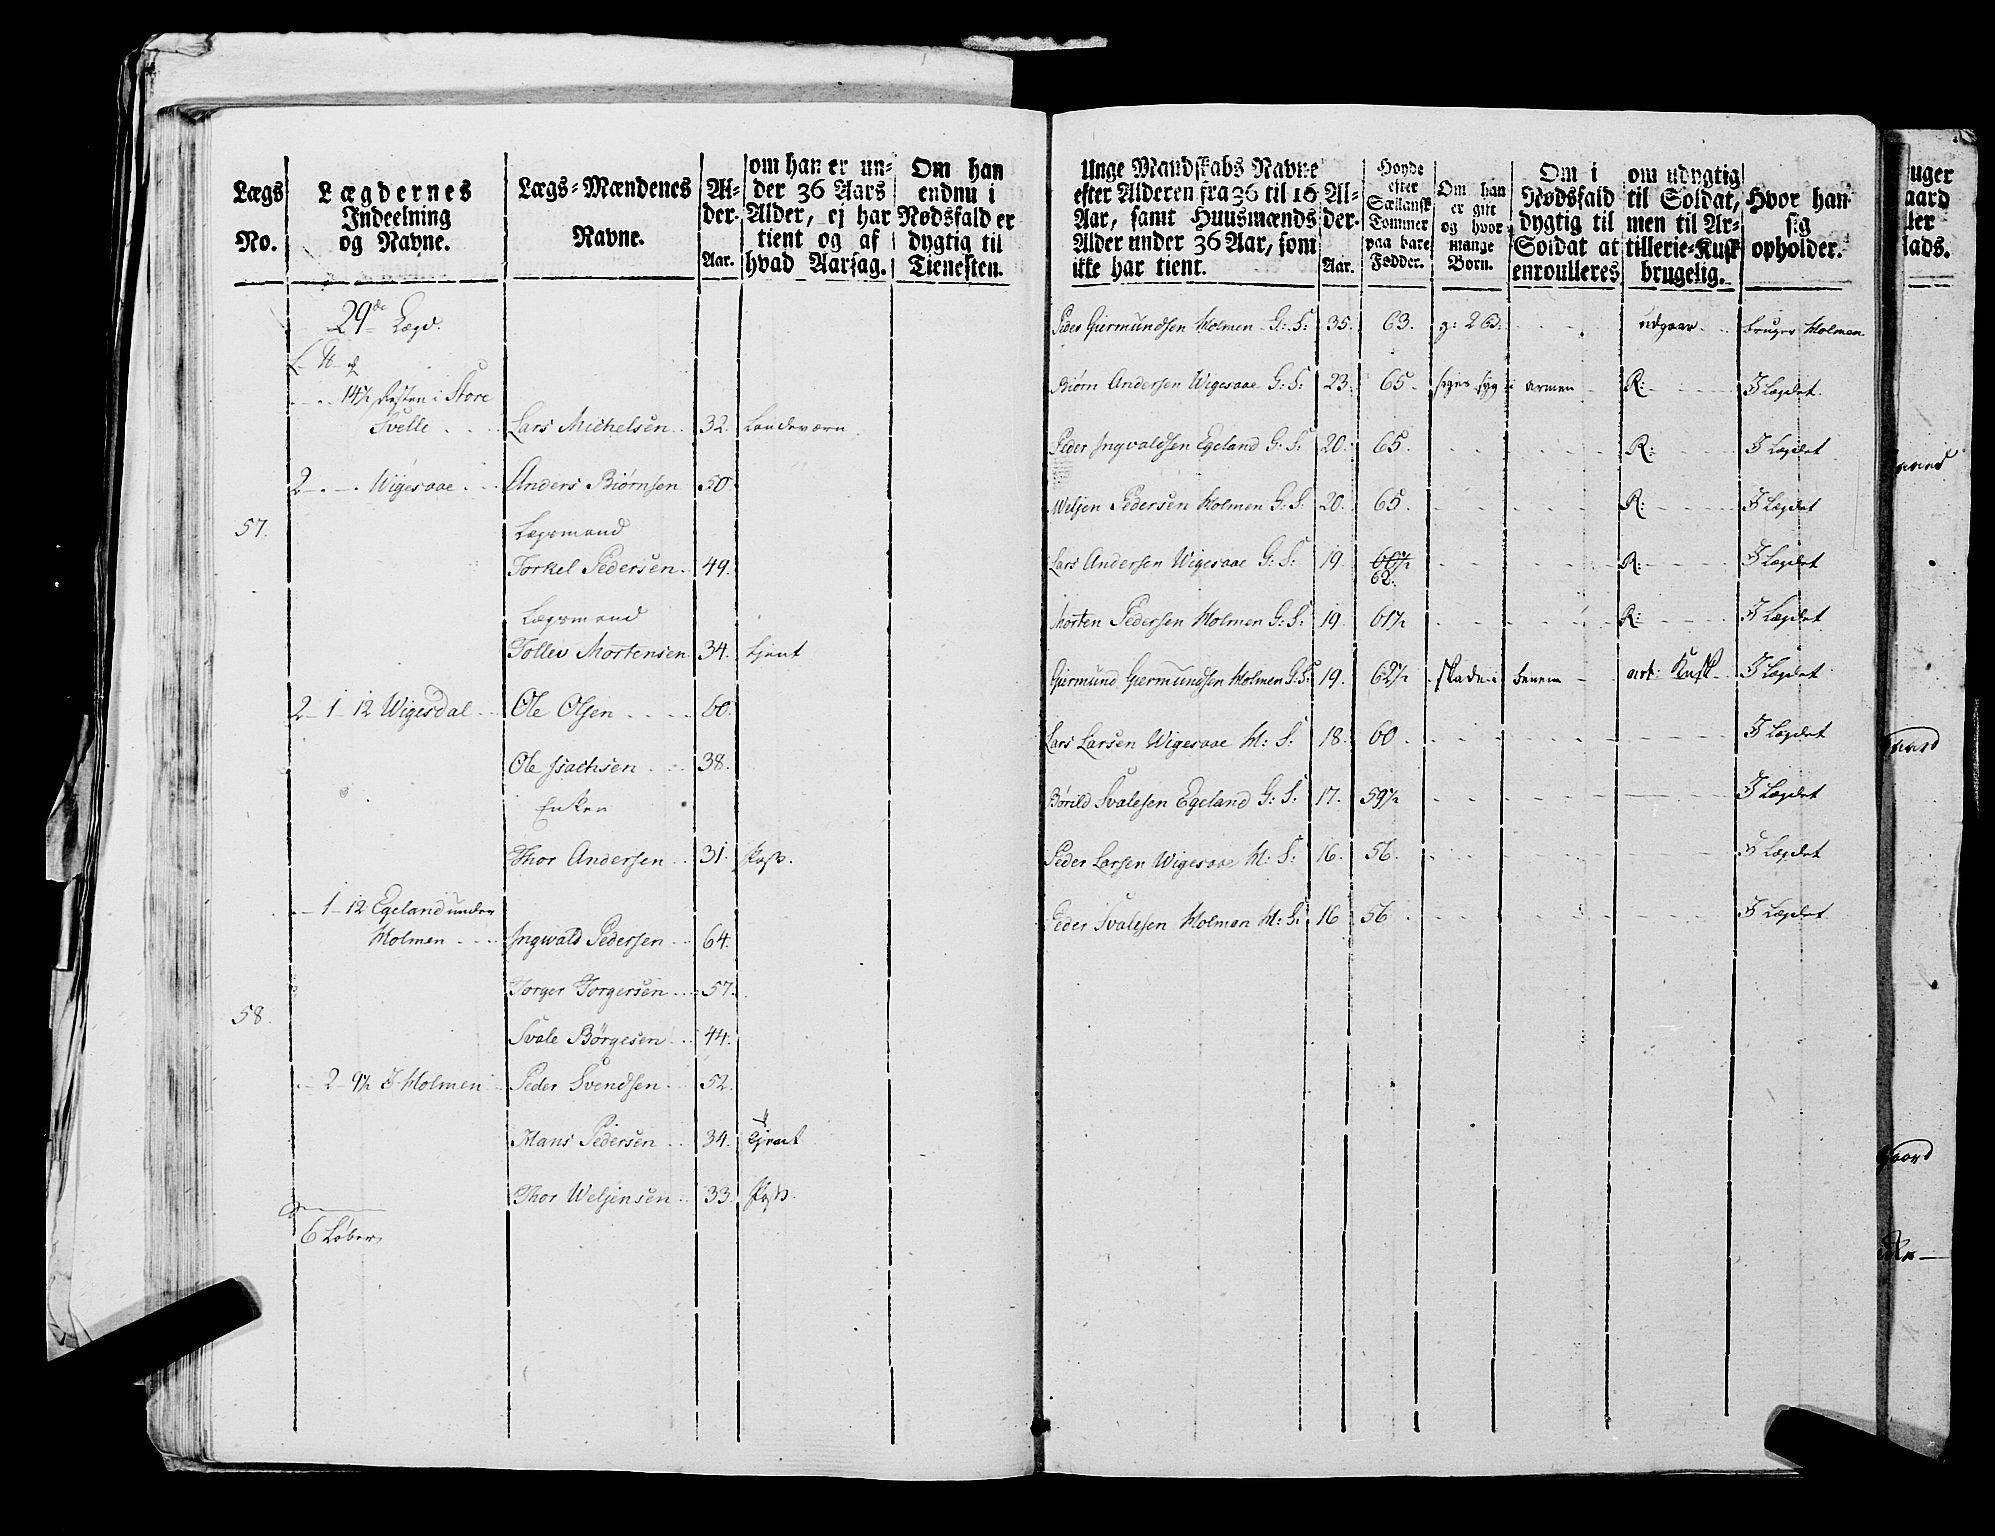 Lægs No.
Lægdernes Indeelning og Navne.
Lægs-Mændenes Navne.
Alder. Aar.
om han er under 36 Aars Alder, ej har tient og af hvad Aarsag.
Om han endnu i Nødsfald er dygtig til Tienesten.
29de Lægd.
14½ Resten i Store
Svelle Lars Michelsen 32. Landeværn
2 Wigesaae Anders Biørnsen 50.
57. Lægsmand
Torkel Pedersen 49.
Lægsmand
Tollev Mortensen 34. tjent
2-1-12 Wigesdal Ole Olsen 60.
Ole Isachsen 38.
Enken
Thor Andersen 31.
1-12 Egeland under
Holmen Ingwald Pedersen 64.
Torger Torgersen 57.
58. Svale Børgesen 44.
2-9½ I Holmen Peder Svendsen 52.
Hans Pedersen 34. Tjent
Thor Weljensen 33.
6 Løber
Unge Mandskabs Navne efter Alderen fra 36 til 16 Aar, samt Huusmænds Alder under 36 Aar, som ikke har tient.
Alder. Aar.
Høyde efter Sællansk Tommer paa bare Fødder.
Om han er gift og hvor mange Børn.
Om i Nødsfald dygtig til Soldat at enroulleres
om udygtig til Soldat, men til Artillerie-Kusk brugelig.
Hvor han sig opholder.
Peder Giermundsen Holmen G: S: 35. 63. g: 2 B: udgaar bruger Holmen
Biørn Andersen Wigesaae G: S: 23. 65. siges syg i armen R: I Lægdet
Peder Ingvaldsen Egeland G: S: 20. 65. R: I Lægdet
Weljen Pedersen Holmen G: S: 20. 65. R: I Lægdet
Lars Andersen Wigesaae G: S: 19. 60½ R: I Lægdet
62.
Morten Pedersen Holmen G: S: 19. 61½ R: I Lægdet
Giermund Giermundsen Holmen G: S: 19. 62½ skade i benene art: Kusk I Lægdet
Lars Larsen Wigesaae H: S: 18. 60. I Lægdet
Børild Svalesen Egeland G: S: 17. 59½ I Lægdet
Peder Larsen Wigesaae H: S: 16. 56. I Lægdet
Peder Svalesen Holmen H: S: 16 56 I Lægdet
uger
aard
ller
lads.